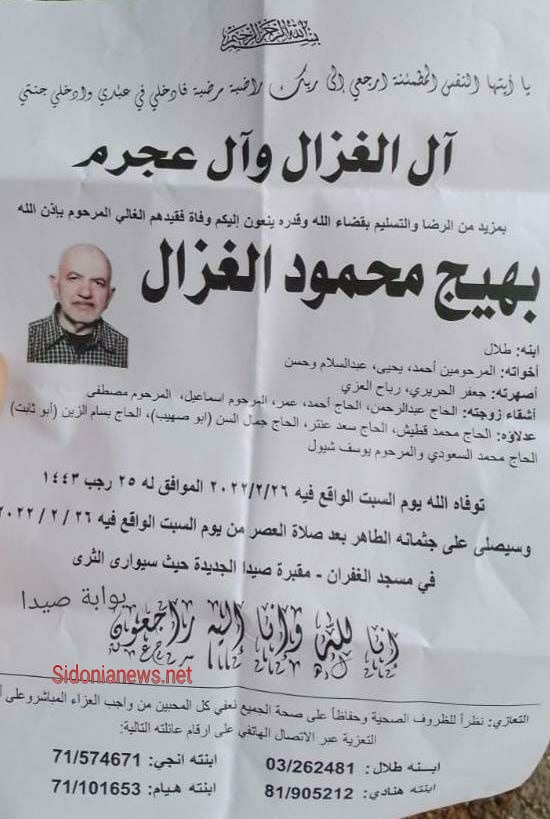 بسم الله الرحمن الرحيم
يا أيتها النفس المطمئنة ارجعي إلى ربك راضية مرضية فادخلي في عبادي وادخلي جنتي
آل الغزال وآل عجرم
بمزيد من الرضا والتسليم بقضاء الله وقدره ينعون إليكم وفاة فقيدهم الغالي المرحوم بإذن الله
بهيج محمود الغزال
ابنه: طلال
أخواته: المرحومين أحمد، يحيى، عبدالسلام وحسن
أصهرته: جعفر الحريري، رباح العزي
أشقاء زوجته: الحاج عبدالرحمن، الحاج أحمد، عمر، المرحوم اسماعيل، المرحوم مصطفى
عدلاؤه: الحاج محمد قطيش، الحاج سعد عنتر، الحاج جمال السن (أبو صهيب)، الحاج بسام الزين (أبو ثابت)
الحاج محمد السعودي والمرحوم يوسف شبول
توفاه الله يوم السبت الواقع فيه ٢٠٢٢/٢/٢٦ الموافق له ٢٥ رجب ١٤٤٣
وسيصلى على جثمانه الطاهر بعد صلاة العصر من يوم السبت الواقع فيه ٢٦ / ٢ / ٢٠٢٢
في مسجد الغفران - مقبرة صيدا الجديدة حيث سيوارى الثرى
بوابة صيدا
إنا لله وإنا إليه راجعون
Sidonianews.net
التعازي: نظراً للظروف الصحية وحفاظاً على صحة الجميع نعفي كل المحبين من واجب العزاء المباشر وعلى
التعزية عبر الاتصال الهاتفي على ارقام عائلته التالية:
ابنه طلال: 03/262481 ابنته انجي: 71/574671
ابنته هنادي: 81/905212 ابنته هيام: 71/101653